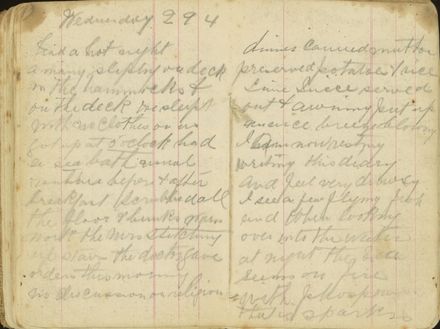 Wednesday 29 4
had a hot night
a many sleeping on deck
in the hammocks &
on the deck we slept
with no clothes on us
got up at 5 oclock had
a sea bath usual
before & after
breakfast scrubbed all
the floor & bunks
the mess
the doctor gave
orders this morning
no discussion on religion
dinner canned mutton
preserved potatoes & rice
Lime Juice served
out & awning put up
a nice breeze blowing
I am now resting
writing this diary
and feel very drowsy
I see a few flying fish
and when looking
over into the water
at night the sea
seems on fire
with
that is sparks